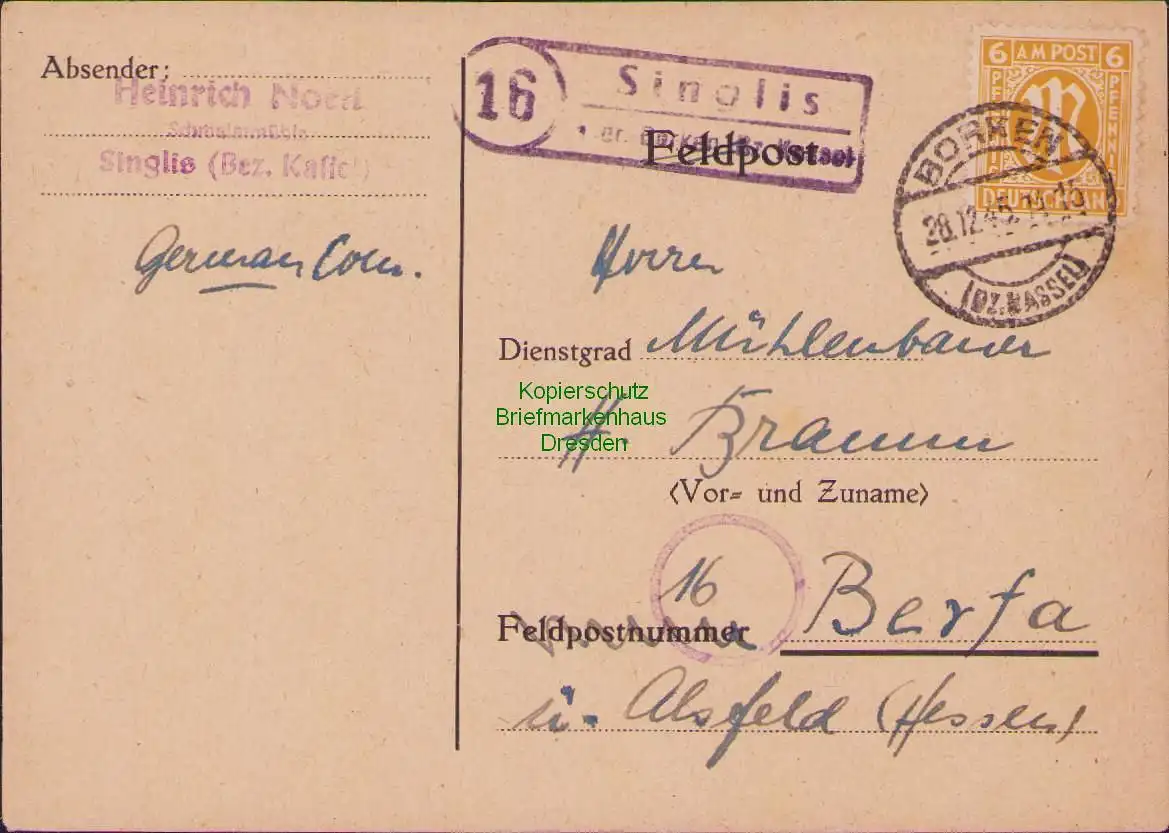 Absender:
Heinrich
Singlis (Bez.
German Com.
16
Singlis
Borken Bz. Kassel
Feldpost
6 AM POST 6
PFENNIG
PFENNIG
DEUTSCHLAND
BORKEN
28.12.45
(BZ. KASSEL)
Herrn
Dienstgrad Mühlenbauer
Kopierschutz
Briefmarkenhaus
Dresden
H. Braun
(Vor= und Zuname)
16
Feldpostnummer Berfa
ü. Alsfeld (Hessen)